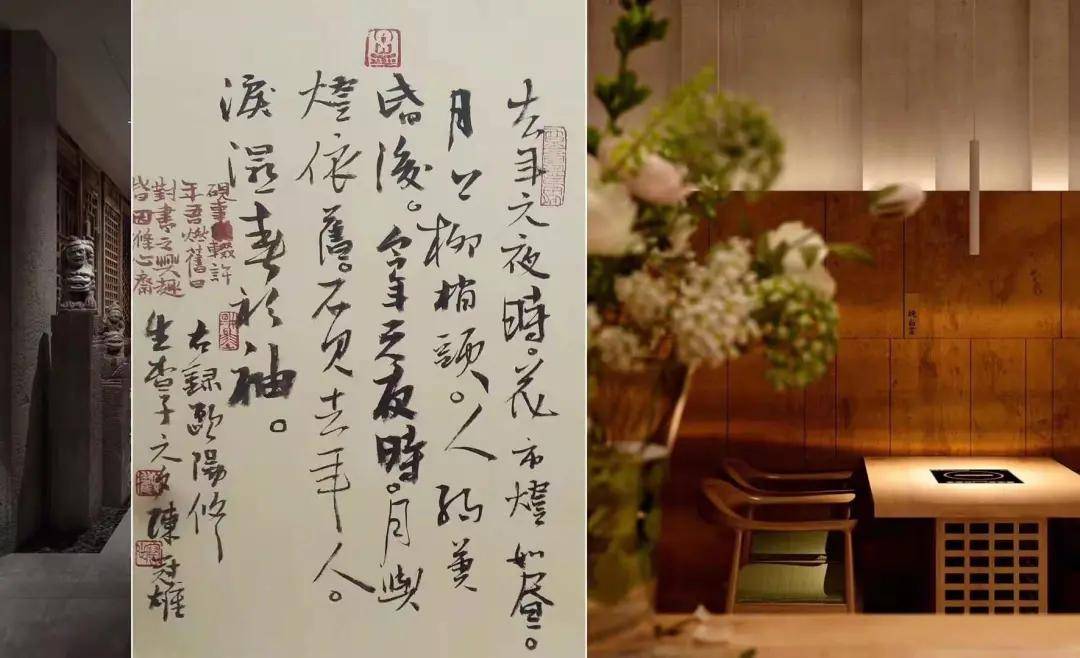 去年元夜時。花市燈如晝。
月上柳梢頭。人約黃
昏後。今年元夜時。月與
燈依舊。不見去年人。
淚濕春衫袖。
右錄歐陽修
生查子元夕陳冠雄
硯事輟許
年吾燃舊日
對書之興趣
皆因修心齋